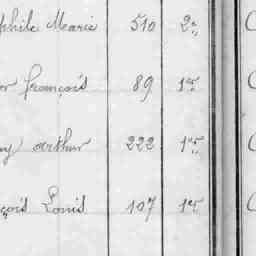 phile Marie 510 2e
or françois 89 1er
ny arthur 222 1er
çois Louis 107 1er